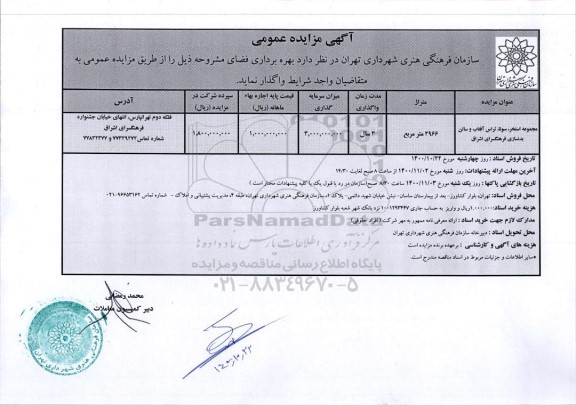 آگهی مزایده عمومی
سازمان فرهنگی هنری شهرداری تهران در نظر دارد بهره برداری فضای مشروحه ذیل را از طریق مزایده عمومی به
متقاضیان واجد شرایط واگذار نماید.
عنوان مزایده | متراژ | مدت زمان واگذاری | میزان سرمایه گذاری | قیمت پایه اجاره بهاء ماهانه (ریال) | سپرده شرکت در مزایده (ریال) | آدرس
مجموعه استخر، سونا، تراس آفتاب و سالن بدنسازی فرهنگسرای اشراق | ۲۹۶۶ متر مربع | ۳ سال | ۳,۰۰۰,۰۰۰,۰۰۰ | ۱,۰۰۰,۰۰۰,۰۰۰ | ۱,۸۰۰,۰۰۰,۰۰۰ | فلکه دوم تهرانپارس، انتهای خیابان جشنواره فرهنگسرای اشراق شماره تماس
تاریخ فروش اسناد : روز چهارشنبه مورخ ۱۴۰۰/۱۰/۲۲
آخرین مهلت ارائه پیشنهادات: روز شنبه مورخ ۱۴۰۰/۱۱/۰۲ از ساعت ۸ صبح لغایت ۱۴:۳۰
تاریخ بازگشایی پاکتها : روز یک شنبه مورخ ۱۴۰۰/۱۱/۰۳ ساعت ۸:۳۰ صبح(سازمان در رد یا قبول یک یا کلیه پیشنهادات مختار است )
محل فروش اسناد: تهران، بلوار کشاورز- بعد از بیمارستان ساسان- نبش خیابان شهید دائمی- پلاک سازمان فرهنگی هنری شهرداری تهران، طبقه ۴، مدیریت پشتیبانی و املاک - شماره تماس
هزینه خرید اسناد: ۱,۰۰۰,۰۰۰ریال و واریز به حساب جاری نزد بانک شهر شعبه بلوار کشاورز
مدارک لازم جهت خرید اسناد : ارائه معرفی نامه ممهور به مهر شرکت (افراد حقوقی)
محل تحویل اسناد : دبیرخانه سازمان فرهنگی هنری شهرداری تهران
هزینه های آگهی و کارشناسی : برعهده برنده مزایده است
*سایر اطلاعات و جزئیات مربوط در اسناد مناقصه مندرج است.
ParsNamadData
پایگاه اطلاع رسانی مناقصه و مزایده
۰۲۱-۸۸۳۴۹۶۷۰-۵
محمد رمضانی
دبیر کمیسیون معاملات
۱۴۰۰,۱۰,۲۲